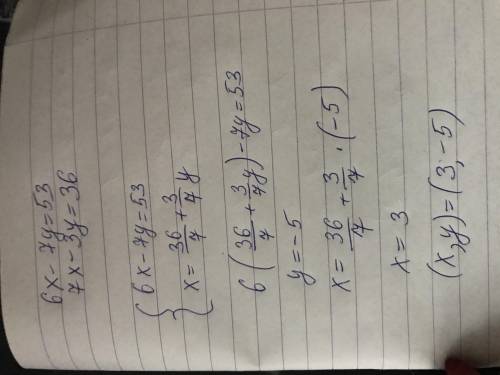 6x - 7y = 53
7x - 3y = 36
{ 6x - 7y = 53
x = 36/7 + 3/7 y
6 ( 36/7 + 3/7 y ) - 7y = 53
y = -5
x = 36/7 + 3/7 · (-5)
x = 3
(x, y) = (3; -5)